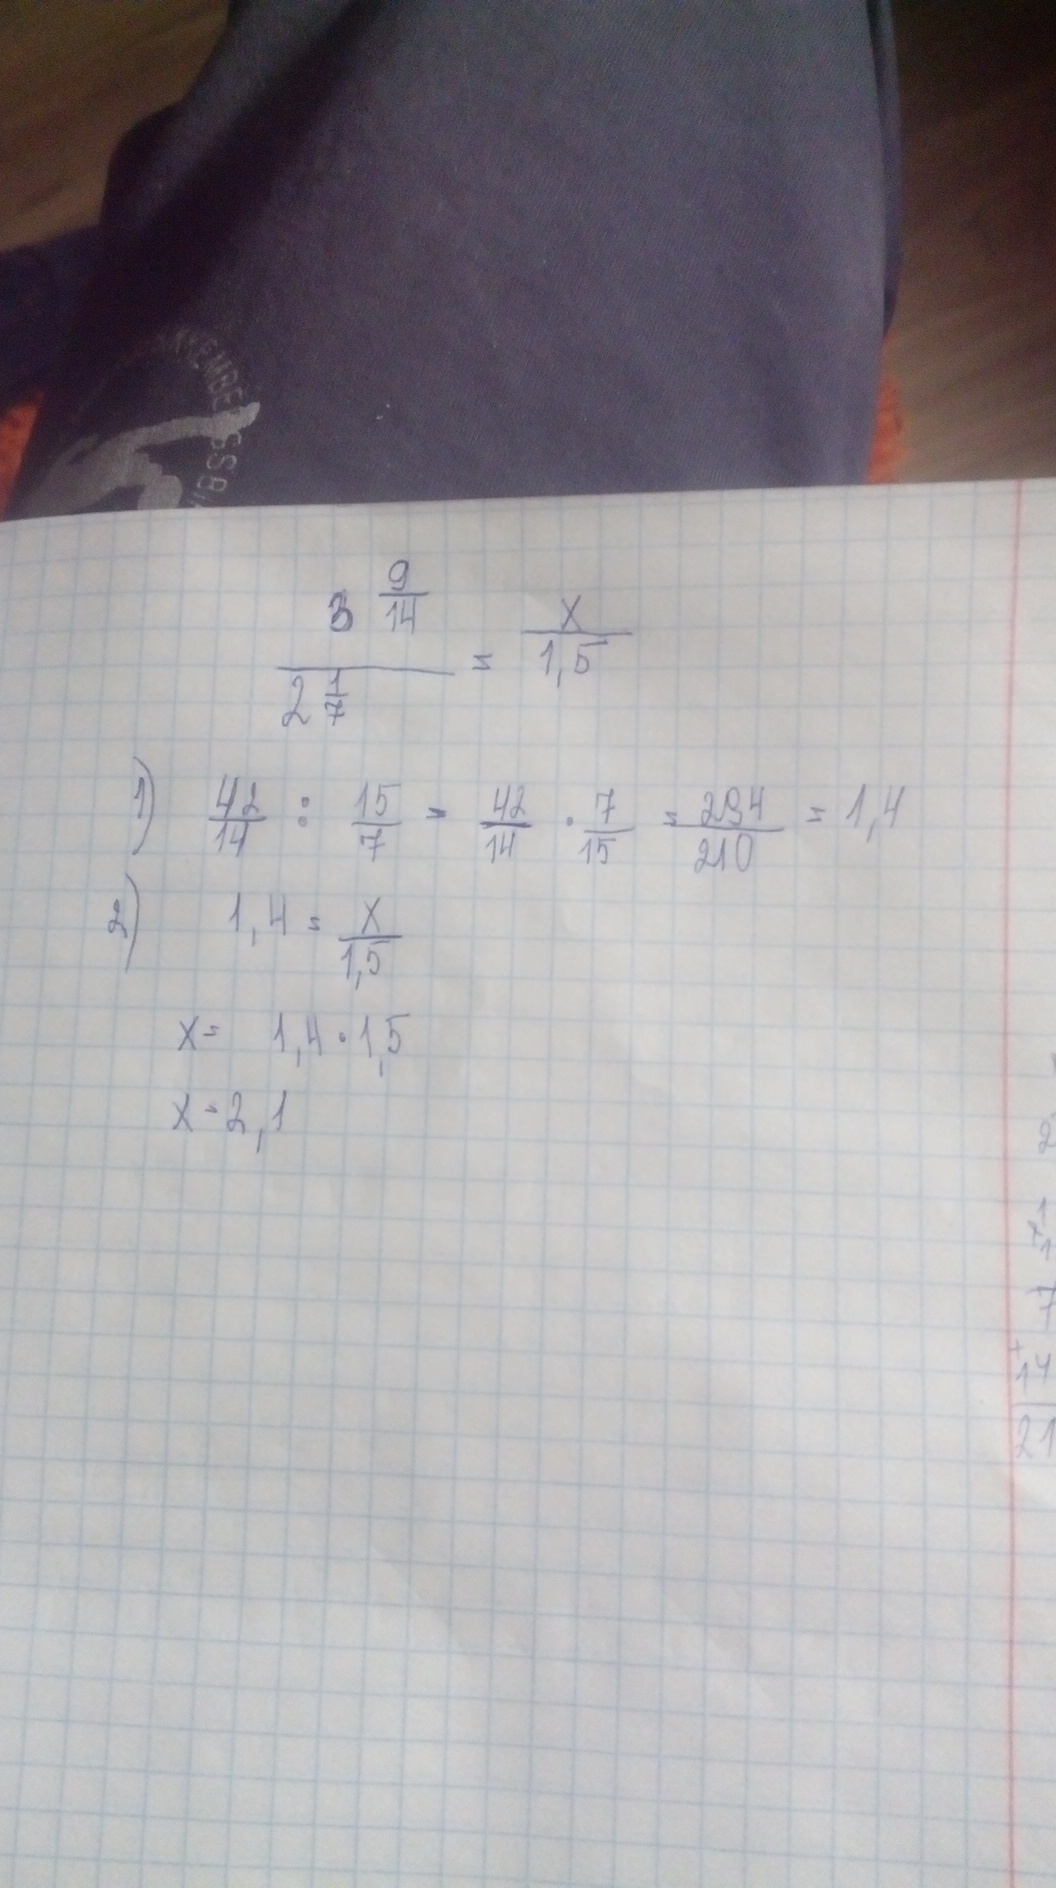 3 9/14 / 2 1/7 = x / 1,5
1) 42/14 : 15/7 = 42/14 · 7/15 = 294/210 = 1,4
2) 1,4 = x/1,5
x = 1,4 · 1,5
x = 2,1
2
7
+
14
21